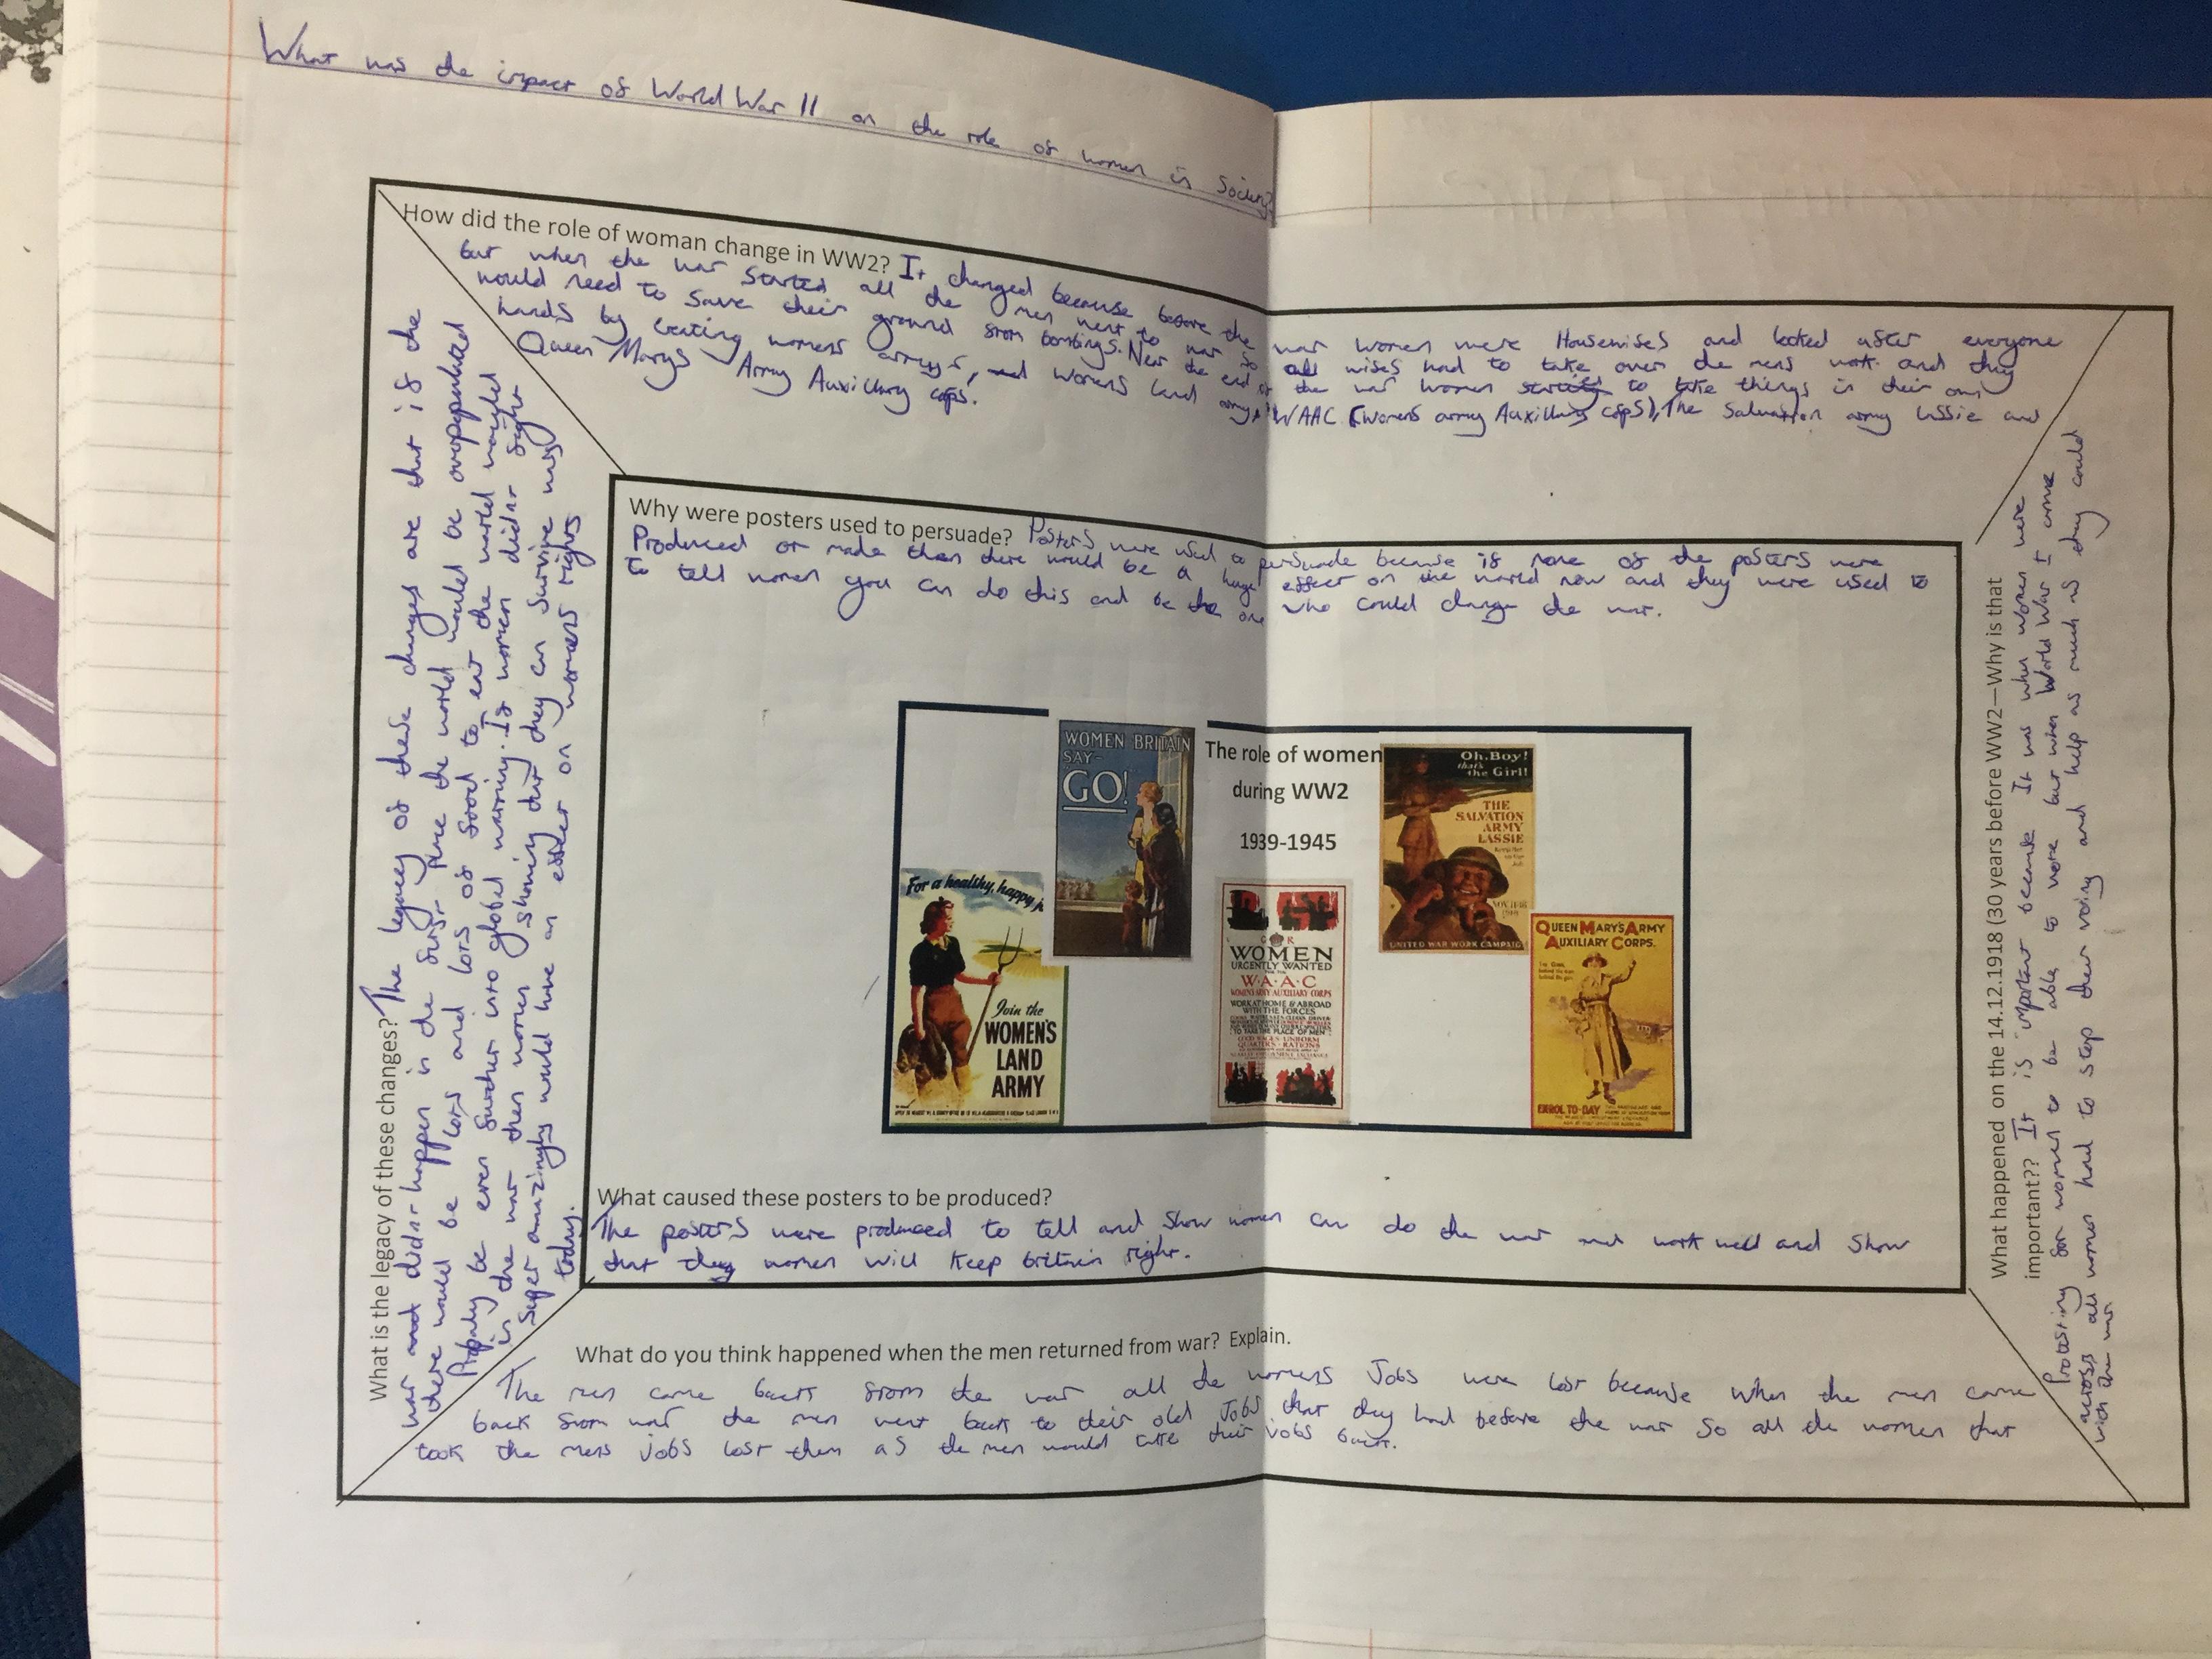 What was the impact of World War II on the role of women in Society?
How did the role of woman change in WW2? It changed because before the war women were Housewifes and looked after everyone
but when the war started all the men went to war so all wifes had to take over the mens work and they
would need to save their ground from bombings. Near the end of the war women starting to take things in their own
hands by creating womens armys, and Womens land army, WAAC (Womens army Auxillary cops), The Salvation army lassie and
Queen Marys Army Auxillary cops.
Why were posters used to persuade? Posters were used to persuade because if none of the posters were
Produced or made then there would be a huge effect on the world now and they were used to
to tell women you can do this and be the one who could change the war.
WOMEN OF BRITAIN
SAY-
GO!
The role of women
during WW2
1939-1945
Oh, Boy!
that's
the Girl!
THE
SALVATION
ARMY
LASSIE
NOV. 11-18
1918
UNITED WAR WORK CAMPAIGN
For a healthy, happy j
Join the
WOMEN'S
LAND
ARMY
G R
WOMEN
URGENTLY WANTED
FOR THE
W.A.A.C
WOMEN'S ARMY AUXILIARY CORPS
WORK AT HOME & ABROAD
WITH THE FORCES
TO TAKE THE PLACE OF MEN
GOOD WAGES-UNIFORM
QUARTERS-RATIONS
QUEEN MARY'S ARMY
AUXILIARY CORPS.
The Girl
behind the man
behind the gun
ENROL TO-DAY
What caused these posters to be produced?
The posters were produced to tell and show women can do the war and work well and show
that they women will keep brittain right.
What do you think happened when the men returned from war? Explain.
The men came back from the war all the womens Jobs were lost because when the men came
back from war the men went back to their old Jobs that they had before the war so all the women that
took the mens jobs lost them as the men would take their jobs back.
What is the legacy of these changes? The legacy of these changes are that if the
war and didnt happen in the first place the world would be ovopopulated
there would be lots and lots of food to eat the world would
Probaly be even further into global warming. If women didnt fight
in the war then women showing that they can survive war
Super amazingly would have an effect on womens rights
today.
What happened on the 14.12.1918 (30 years before WW2—Why is that
important?? It is important because It was when women were
Protesting for women to be able to vote but when World War I came
across all women had to stop their voting and help as much as they could
with the war